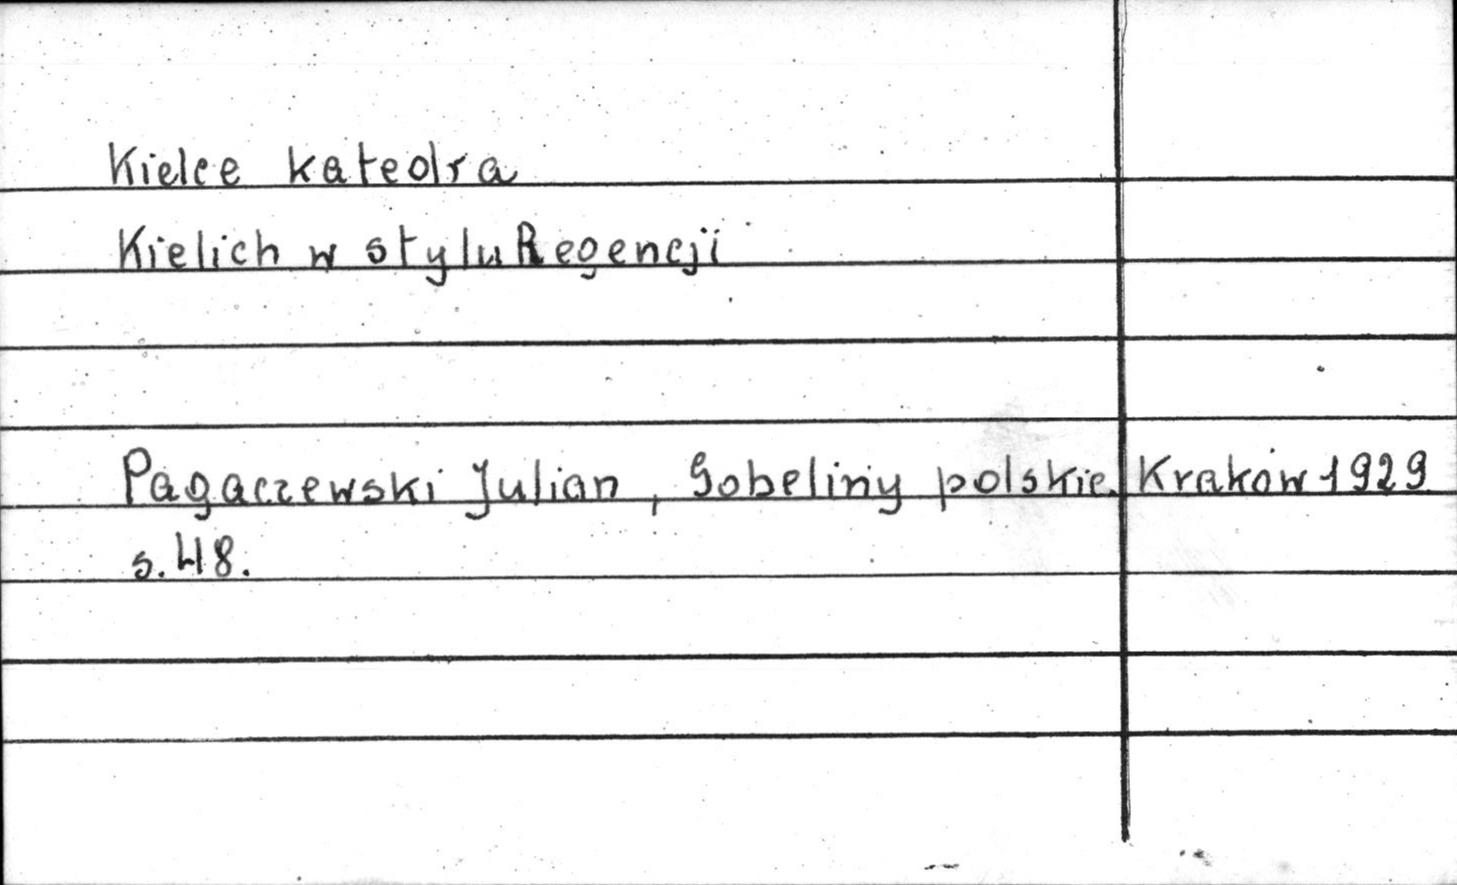 Kielce katedra
Kielich w stylu Regencji
Pagaczewski Julian, Gobeliny polskie. Kraków 1929
s. 48.